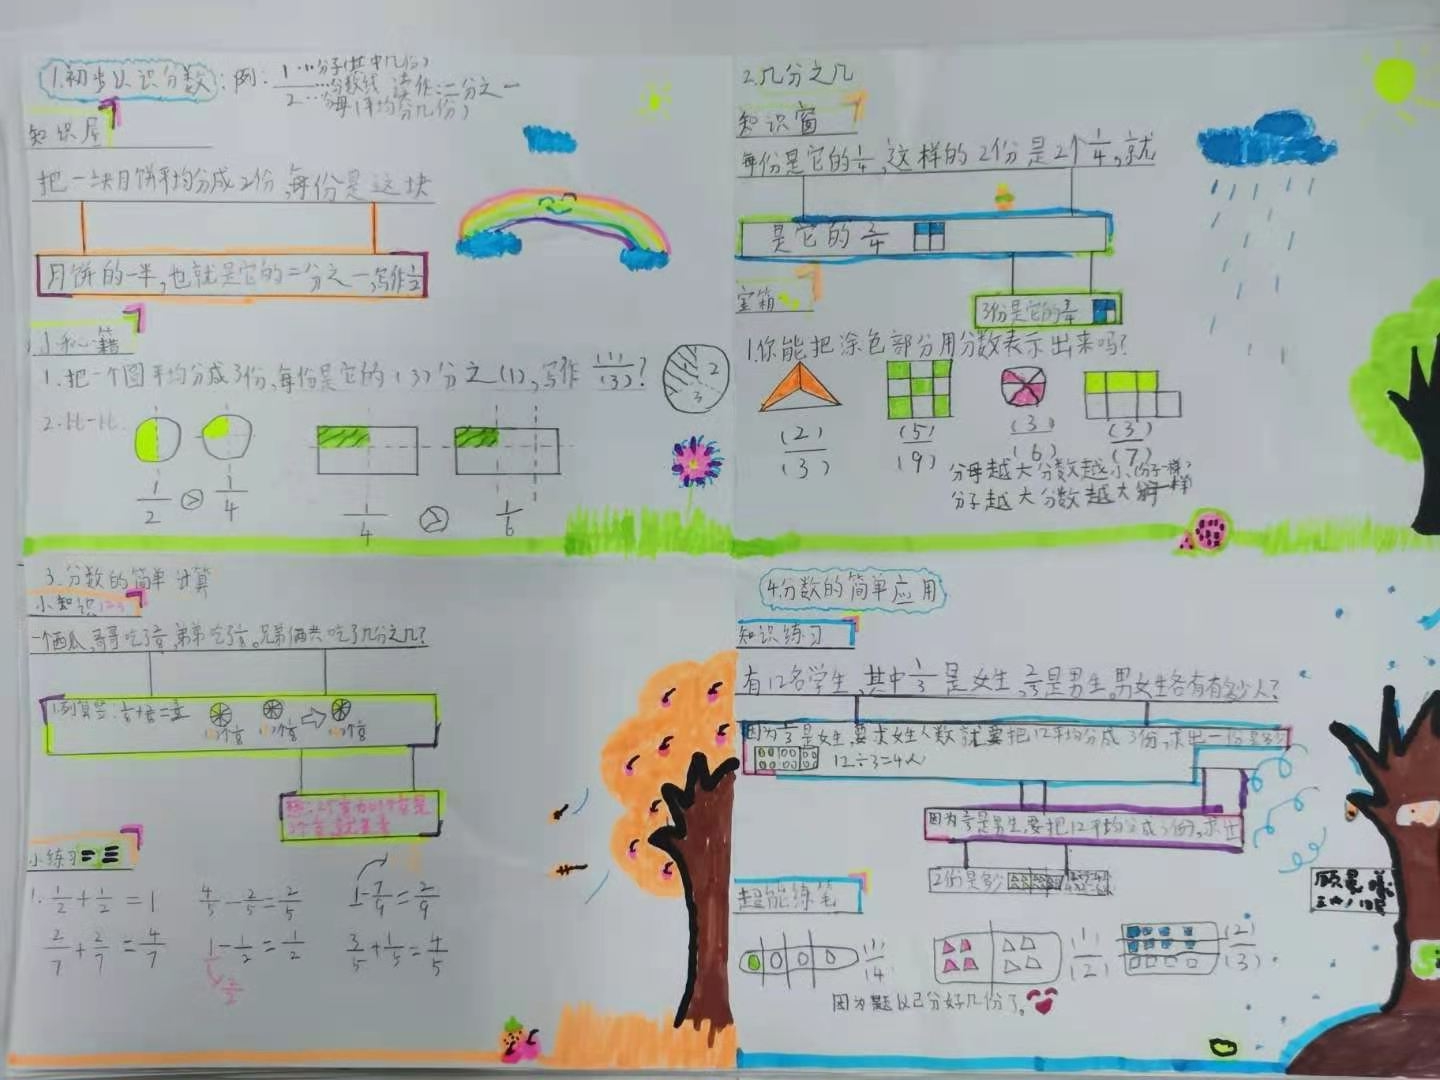 1.初步认识分数：例：1…分子(其中几份)
—…分数线 读作:二分之一
2…分母(平均分几份)
知识屋
把一块月饼平均分成2份,每份是这块
月饼的一半,也就是它的二分之一,写作1/2
小秘籍
1.把一个圆平均分成3份,每份是它的(3)分之(1),写作(1)/(3)?
2
3
2.比一比.
1/2 > 1/4
1/4 > 1/6
2.几分之几
知识窗
每份是它的1/4,这样的2份是2个1/4,就
是它的2/4
宝箱
3份是它的3/4
1.你能把涂色部分用分数表示出来吗?
(2)/(3) (5)/(9) (3)/(6) (3)/(7)
分母越大分数越小(分子一样)
分子越大分数越大
3.分数的简单计算
小知识123
一个西瓜,哥哥吃了,弟弟吃了,兄弟俩共吃了几分之几?
小练习
1. 1/2+1/2=1 4/5-2/5=2/5 1-7/9=2/9
2/7+2/7=4/7 1-1/2=1/2 3/5+1/5=4/5
2/2
4.分数的简单应用
知识练习
有12名学生,其中1/3是女生,2/3是男生。男女生各有有多少人?
因为1/3是女生,要求女生人数就要把12平均分成3份,求出一份是多少
12÷3=4人
因为2/3是男生,要把12平均分成3份,求出
2份是多少
超能练笔
(1)/(4 (1)/(2) (2)/(3)
因为题以已分好几份了。